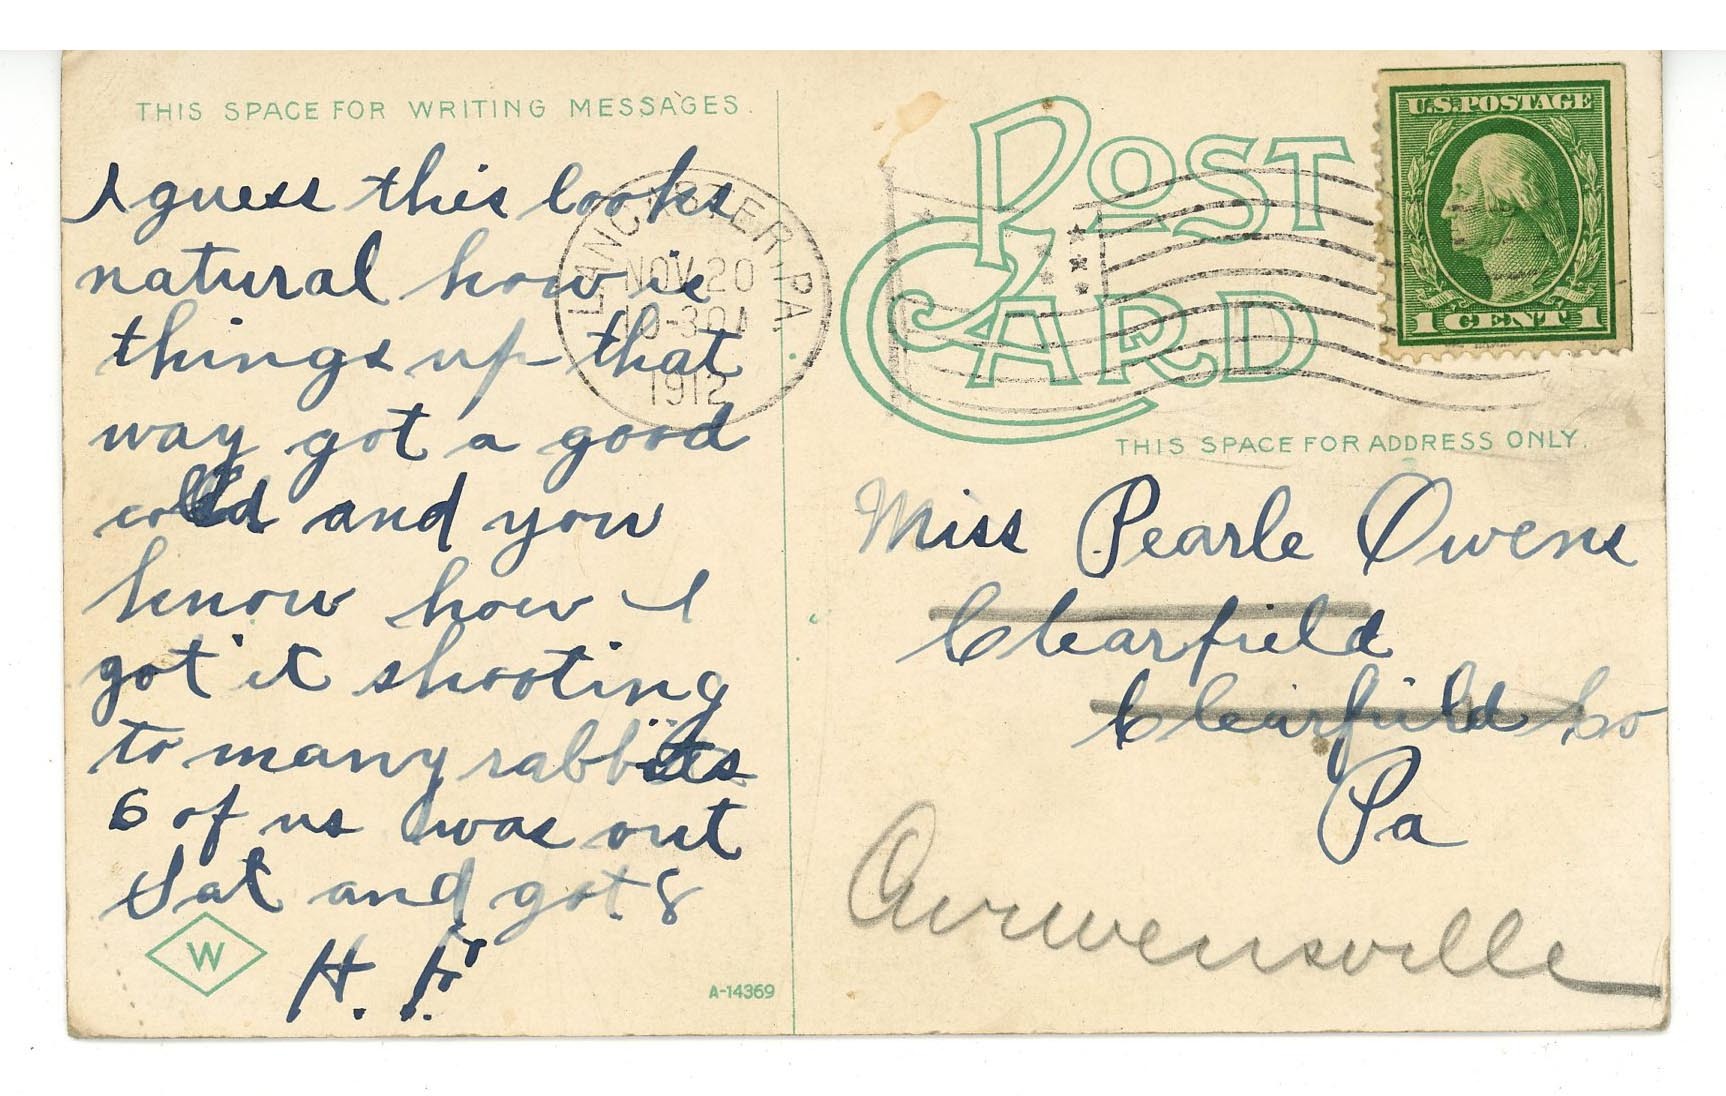 THIS SPACE FOR WRITING MESSAGES.
I guess this looks
natural how is
things up that
way got a good
cold and you
know how I
got it shooting
to many rabbits
6 of us was out
Sat and got 8
H. F.
W
A-14369
LANCASTER, PA.
NOV 20
10-30A
1912
POST CARD
U.S. POSTAGE
1 CENT 1
THIS SPACE FOR ADDRESS ONLY.
Miss Pearle Owens
Clearfield
Clearfield Co
Pa
Curwensville